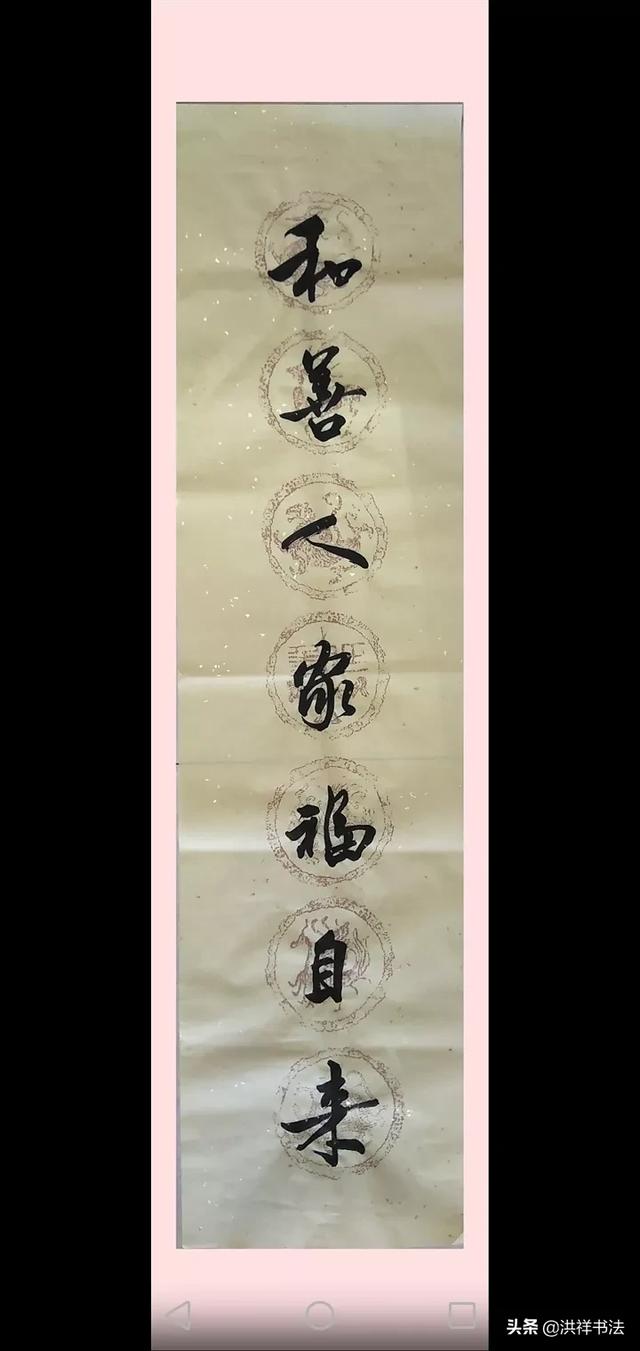 和善人家福自来
头条 @洪祥书法